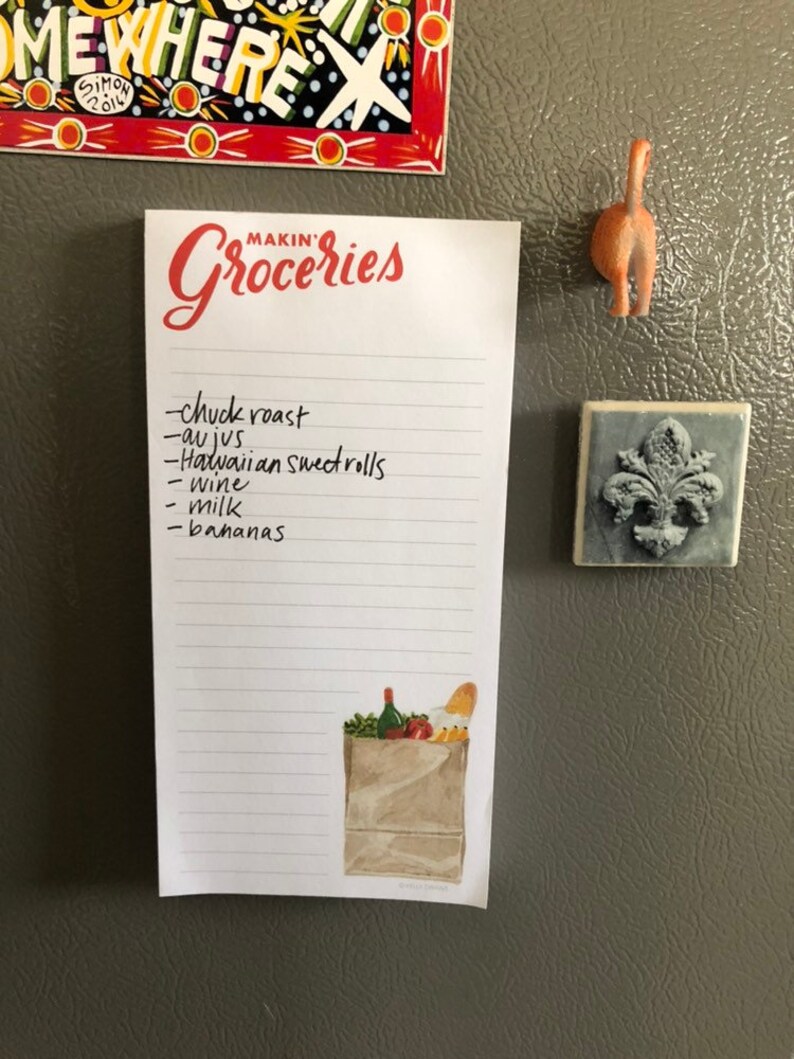 OMEWHERE
SIMON
2014
MAKIN'
Groceries
-chuck roast
-au jus
-Hawaiian sweet rolls
- wine
- milk
- bananas